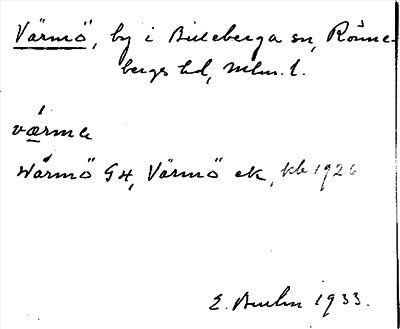 Värmö, by i Billeberga sn, Rönne-
bergs hd, Mlm. l.
værmə
Wärmö G4, Värmö ek, kb 1926
E. 1933.